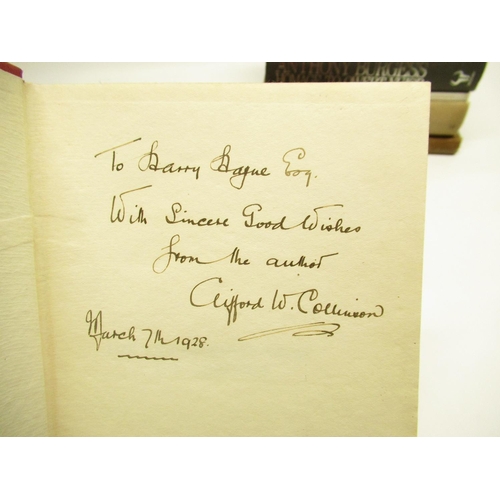 ANTHONY BURGESS
To Harry Hague Esq.
With Sincere Good Wishes
from the author
Clifford W. Collinson
March 7th 1928.